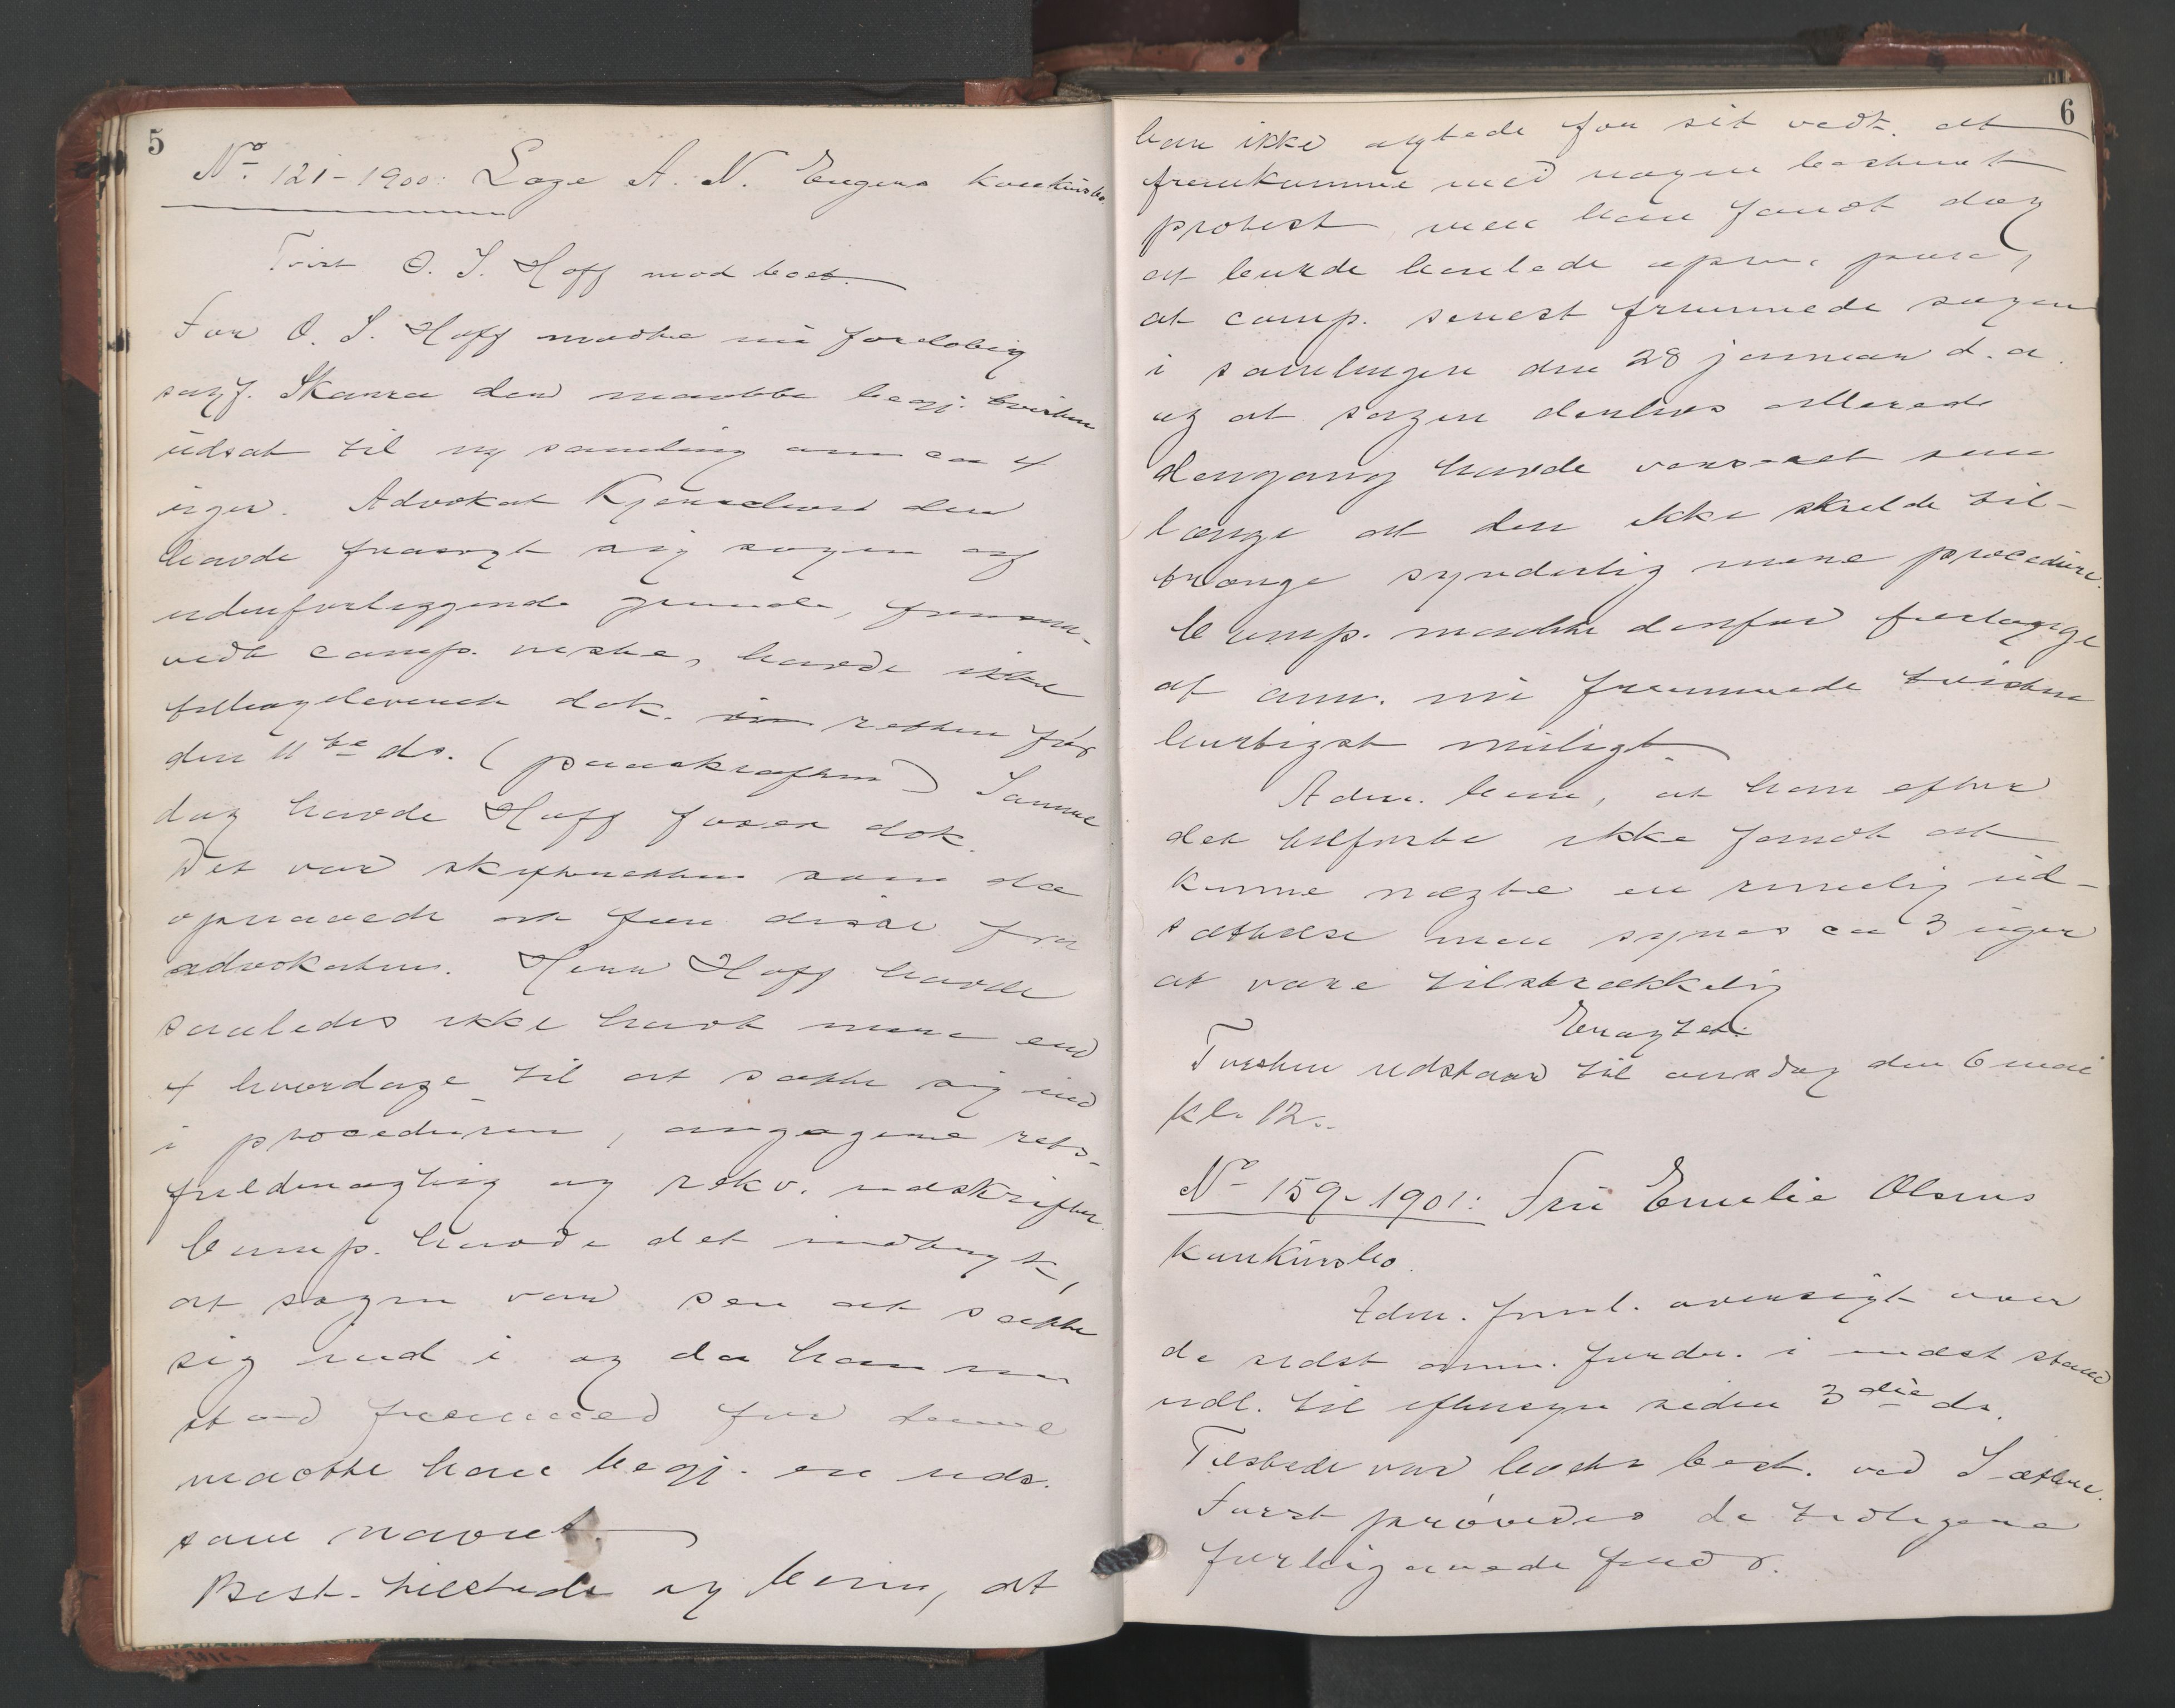 5
No 121-1900: Læge A. N. Engers konkursbo.
Tvist O. S. Hoff mod boet.
For O. S. Hoff mødte nu foreløbig
sagf. Skarra der maatte begj. tvisten
udsat til ny samling om ca 4
uger. Advokat der
havde frasagt sig sagen af
udenforliggende grunde, havde
vedk comp. vidste, havde ikke
tilbagelevert dok. retten før
den 11te ds. (paaskraften) Samme
dag havde Hoff faaet dok.
Det var som da
at faa disse fra
advokaten. Herr Hoff havde
saaledes ikke havt mere end
4 hverdage til at sætte sig ind
i proceduren, engagere rets-
fuldmægtig og rekv. udskrifter.
Comp. havde det indtryk,
at sagen var sen at sætte
sig ind i og da han nu
stod fremmed for denne
maatte han begj. en uds.
som nævnt.
Best. tilstede og bem, at
6
han ikke agtede for sit vedk. at
fremkomme med nogen bestemt
protest men han fandt dog
at burde henlede opm. paa,
at comp. senest fremmede sagen
i samlingen den 28 januar d. a.
og at sagen derhos allerede
dengang havde verseret saa
længe at den ikke skulde til-
trænge synderlig mere procedure.
Comp. maatte derfor forlange
at anm. nu fremmede tvisten
hurtigst muligt.
Adm. bem, at han efter
det tilførte ikke fandt at
kunne nægte en rimelig ud-
sættelse men synes ca 3 uger
at være tilstrækkelig
Eragtet:
Tvisten udstaar til onsdag den 6 mai
kl. 12..
No 159-1901: Fru Emelie Olsens
konkursbo.
Adm. freml. oversigt over
de sidst anm. fordr. i stand
udl. til eftersyn siden 3die ds.
Tilstede var boets best. ved Sætren.
Først prøvedes de tidligere
fordr.